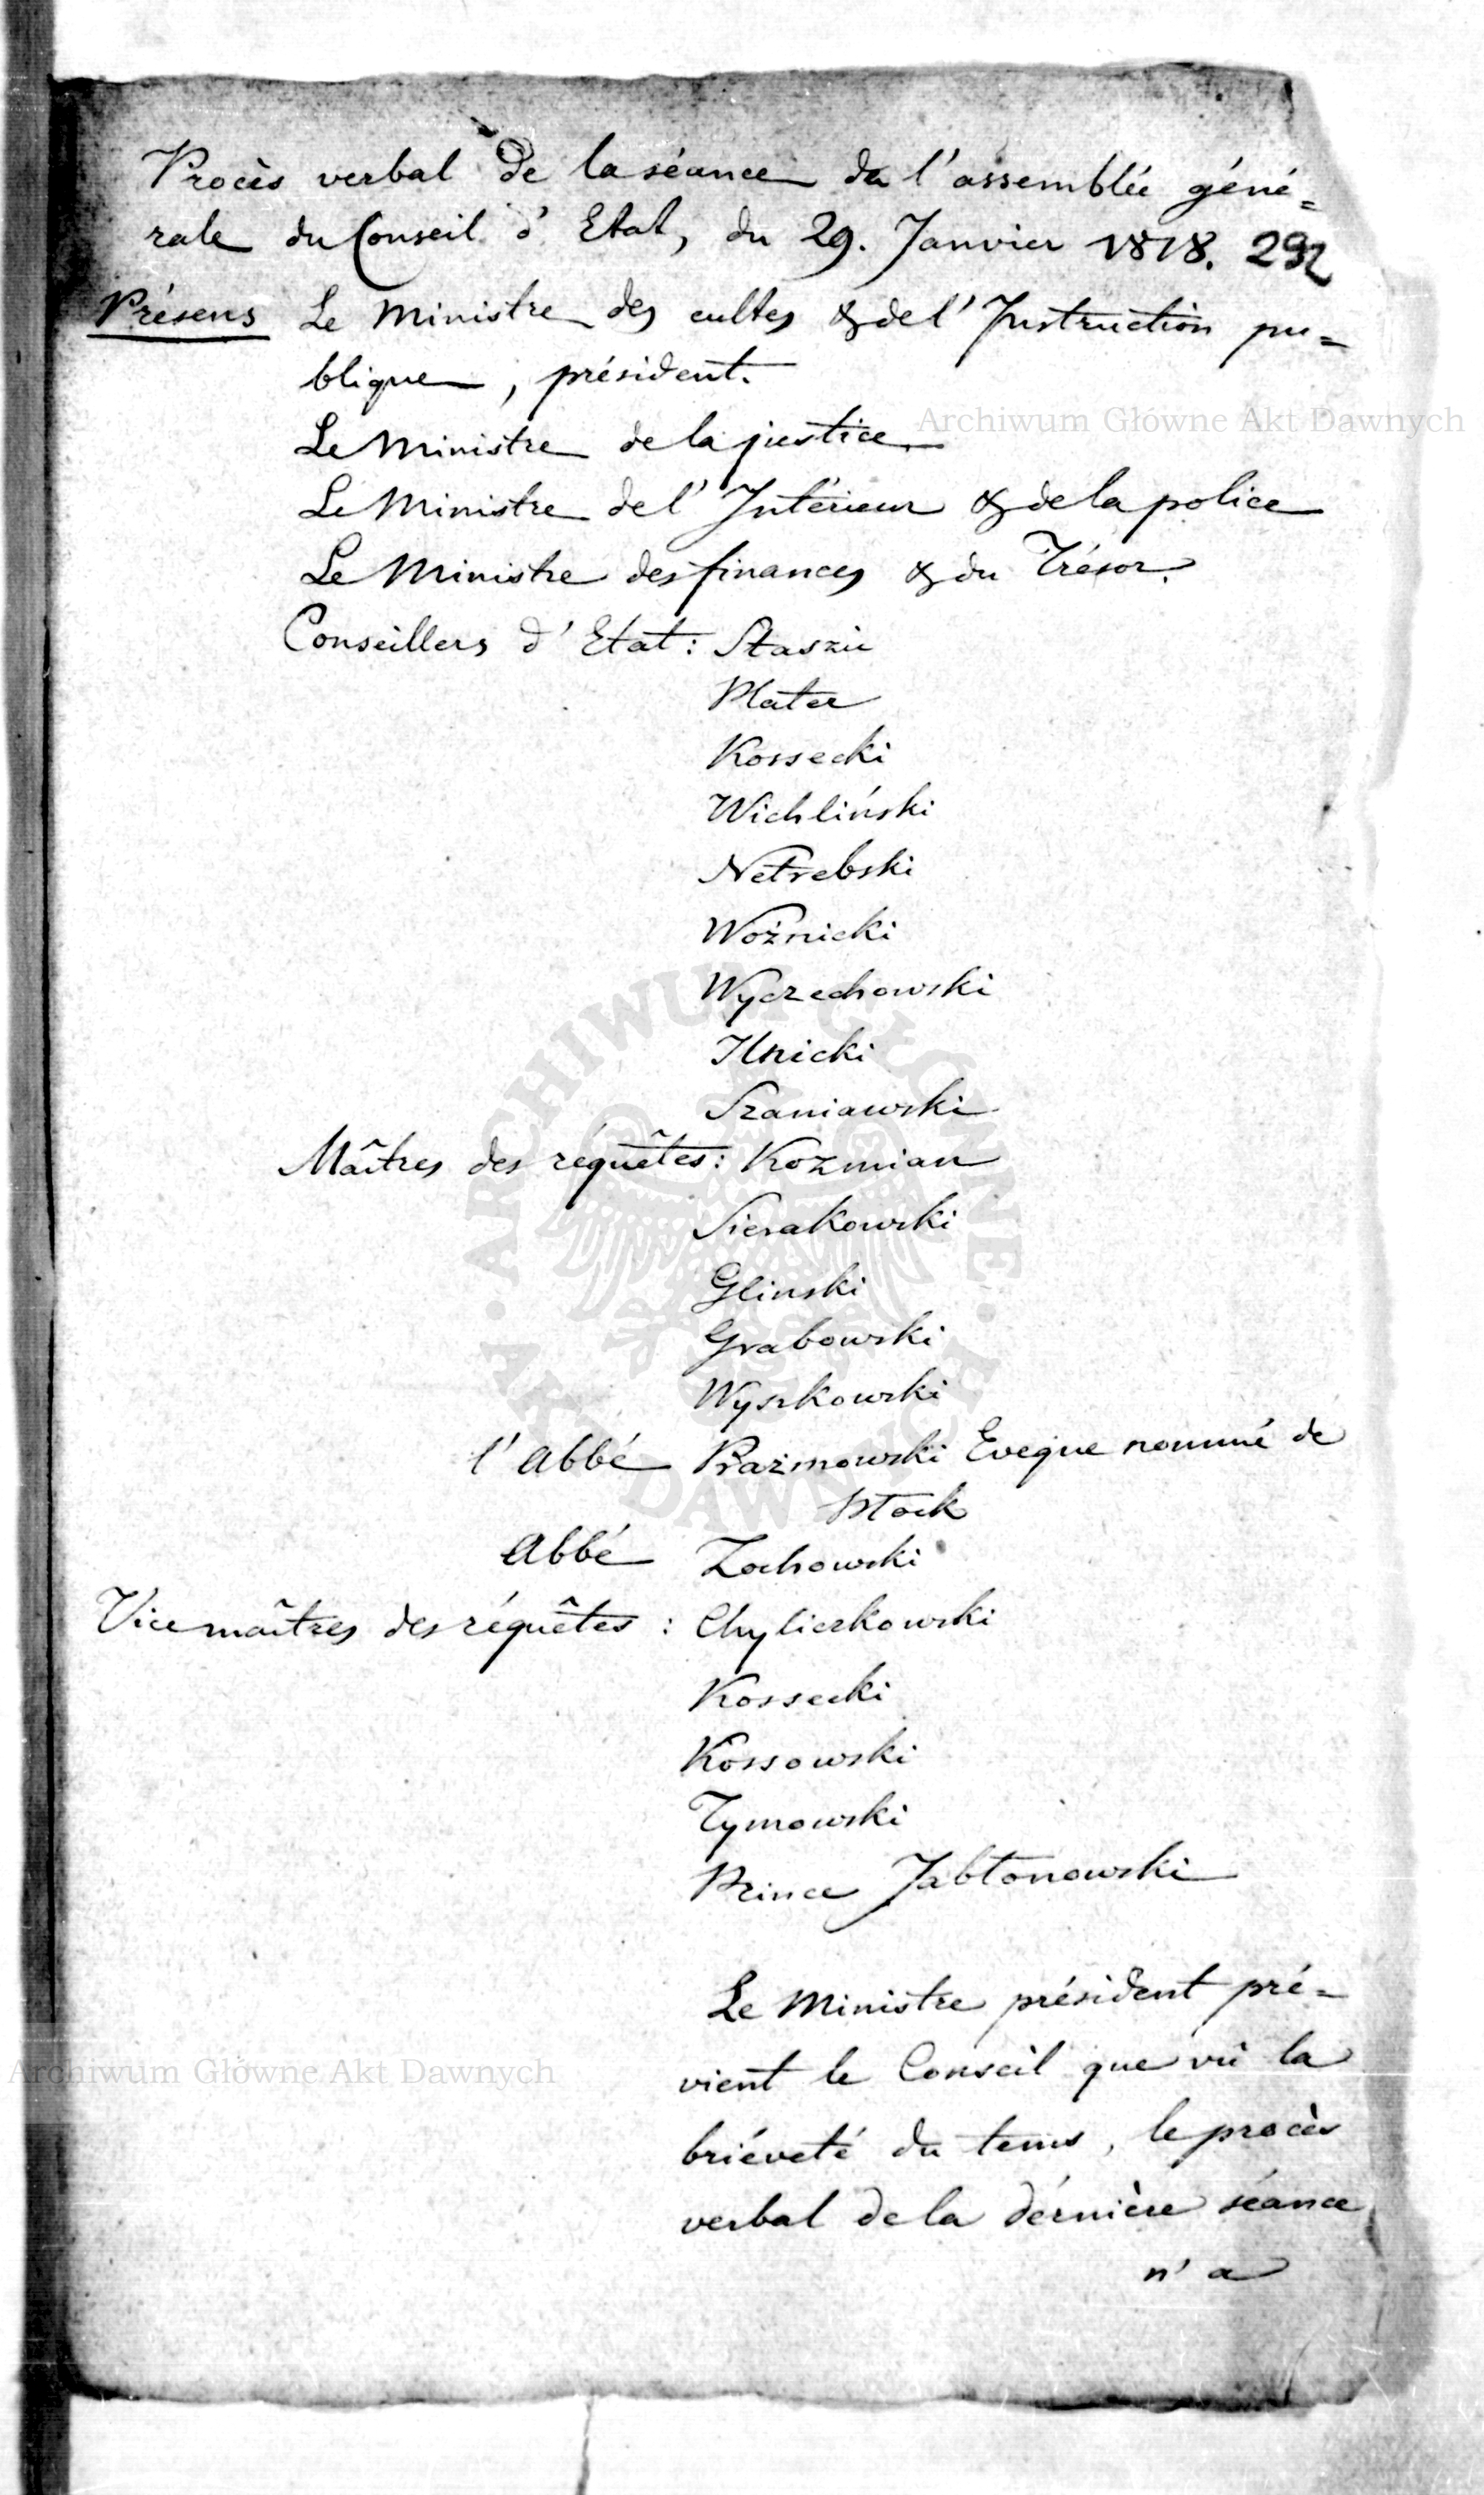 Procès verbal de la séance de l'assemblée géné=
rale du Conseil d'Etat, du 29. Janvier 1818. 292
Présens Le Ministre des cultes & de l'Instruction pu=
blique, président.
Archiwum Główne Akt Dawnych
Le Ministre de la justice
Le Ministre de l'Intérieur & de la police
Le Ministre des finances & du Trésor.
Conseillers d'Etat: Staszic
Plater
Kossecki
Wichliński
Netrebski
Woźnicki
Wyczechowski
Ilnicki
Szaniawski
Maîtres des réquêtes: Kozmian
Sierakowski
Glinski
Grabowski
Wyszkowski
l'abbé Prażmowski Eveque nommé de
Płock
abbé Zochowski
Vice maîtres des réquêtes: Chyliczkowski
Kossecki
Kossowski
Tymowski
Prince Jabłonowski
Le Ministre président pré=
vient le Conseil que vû la
Archiwum Główne Akt Dawnych
briéveté du tems, le procès
verbal de la dérnière séance
n'a
ARCHIWUM GŁÓWNE AKT DAWNYCH